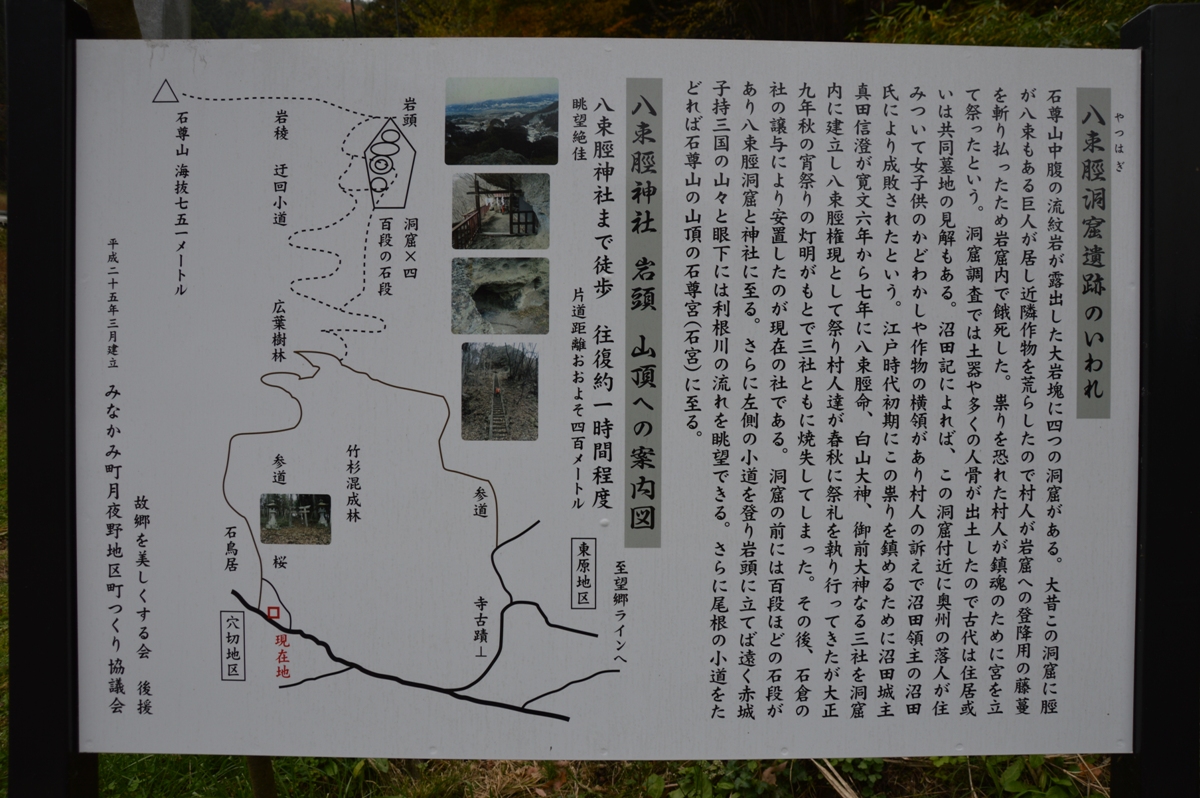 八束脛洞窟遺跡のいわれ
やつはぎ
石尊山中腹の流紋岩が露出した大岩塊に四つの洞窟がある。大昔この洞窟に脛
が八束もある巨人が居し近隣作物を荒らしたので村人が岩窟への登降用の藤蔓
を斬り払ったため岩窟内で餓死した。祟りを恐れた村人が鎮魂のために宮を立
て祭ったという。洞窟調査では土器や多くの人骨が出土したので古代は住居或
いは共同墓地の見解もある。沼田記によれば、この洞窟付近に奥州の落人が住
みついて女子供のかどわかしや作物の横領があり村人の訴えで沼田領主の沼田
氏により成敗されたという。江戸時代初期にこの祟りを鎮めるために沼田城主
真田信澄が寛文六年から七年に八束脛命、白山大神、御前大神なる三社を洞窟
内に建立し八束脛権現として祭り村人達が春秋に祭礼を執り行ってきたが大正
九年秋の宵祭りの灯明がもとで三社ともに焼失してしまった。その後、石倉の
社の譲与により安置したのが現在の社である。洞窟の前には百段ほどの石段が
あり八束脛洞窟と神社に至る。さらに左側の小道を登り岩頭に立てば遠く赤城
子持三国の山々と眼下には利根川の流れを眺望できる。さらに尾根の小道をた
どれば石尊山の山頂の石尊宮(石宮)に至る。
八束脛神社 岩頭 山頂への案内図
八束脛神社まで徒歩 往復約一時間程度
片道距離おおよそ四百メートル
眺望絶佳
岩頭
洞窟×四
百段の石段
岩稜 迂回小道
広葉樹林
石尊山 海抜七五一メートル
竹杉混成林
参道
参道
桜
石鳥居
現在地
穴切地区
寺古蹟⊥
東原地区
至望郷ラインへ
故郷を美しくする会 後援
平成二十五年三月建立 みなかみ町月夜野地区町つくり協議会